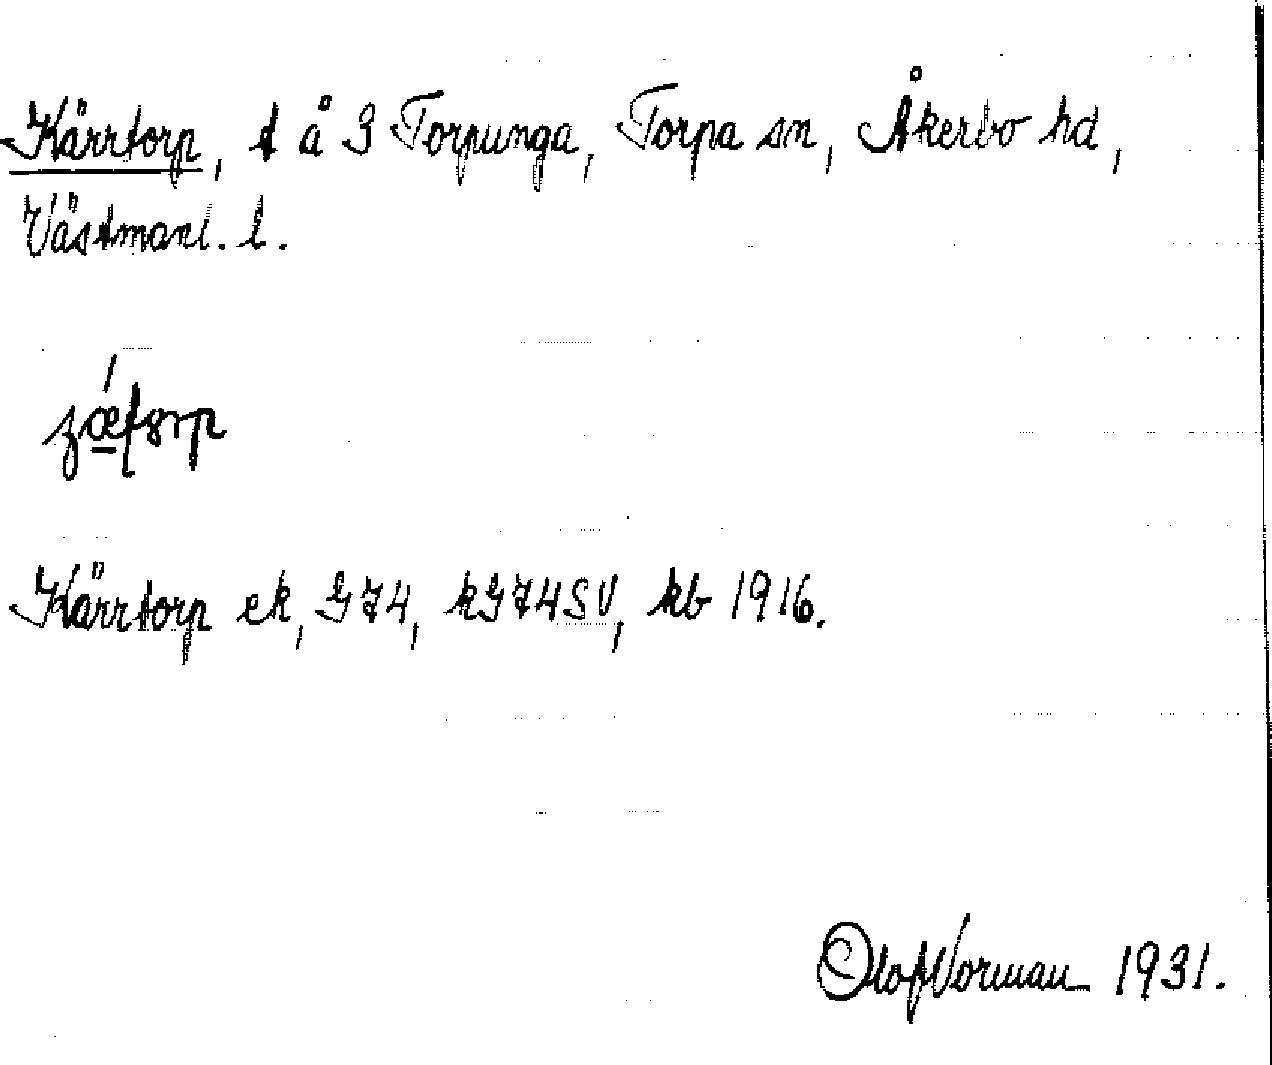 Kärrtorp, t å S Torpunga, Torpa sn, Åkerbo hd,
Västmanl. l.
Kärrtorp ek, G74, kG74SV, kb 1916.
Olof Norman 1931.